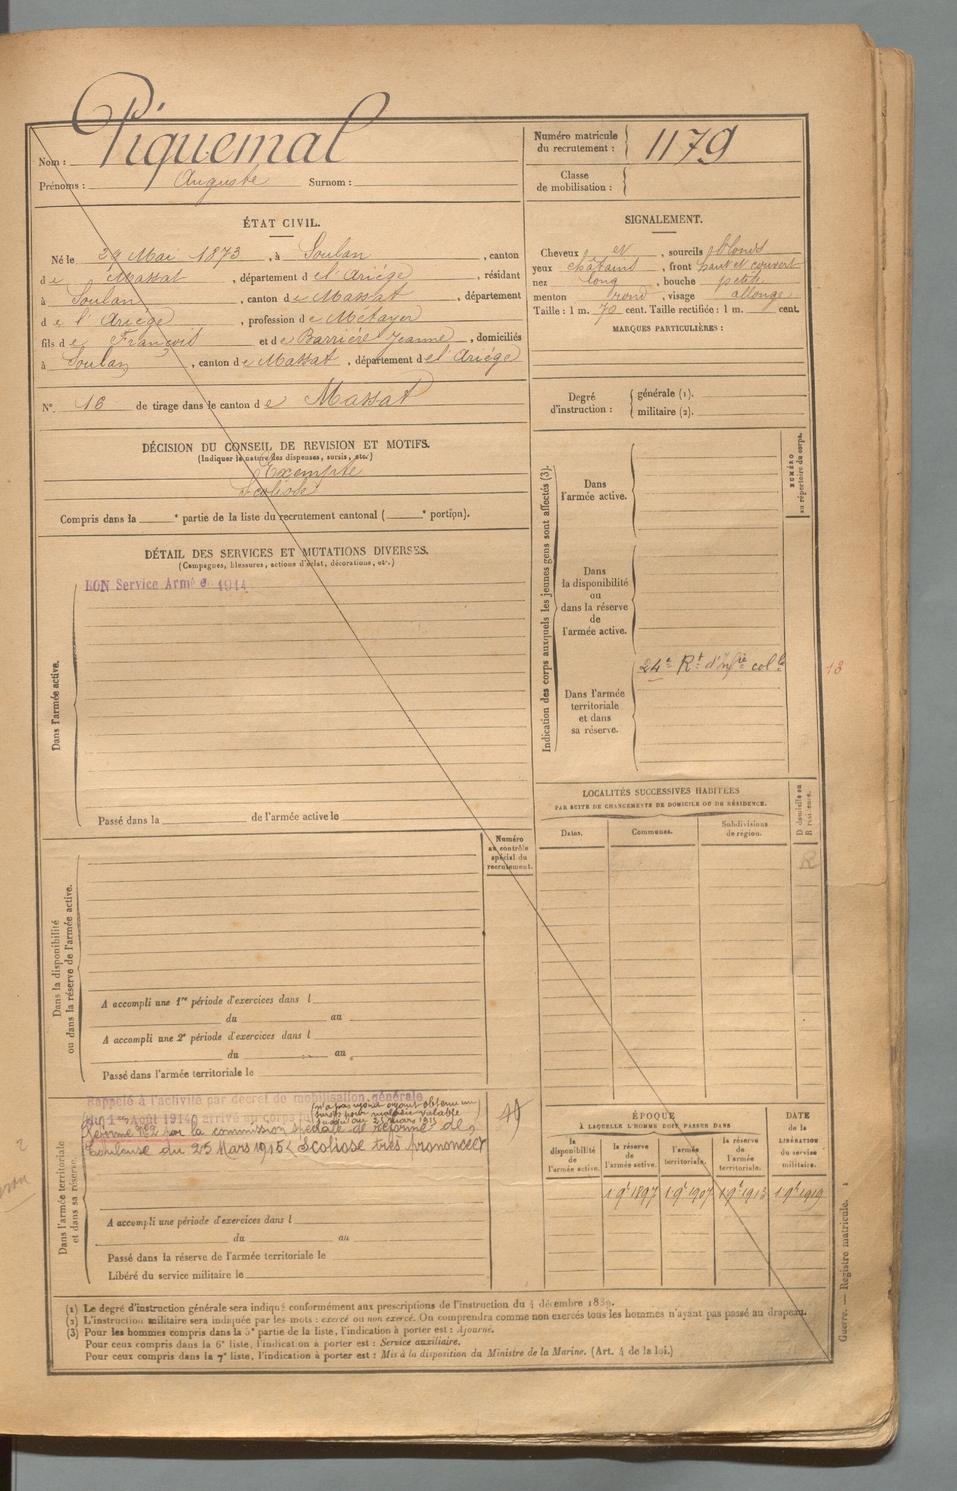 Nom : Piquemal
Prénoms : Auguste Surnom :
Numéro matricule du recrutement : 1179
Classe de mobilisation :
ÉTAT CIVIL.
Né le 29 Mai 1873, à Soulan, canton
de Massat, département de l'Ariége, résidant
à Soulan, canton de Massat, département
de l'Ariège, profession de Métayer
fils de François et de Barrière Jeanne, domiciliés
à Soulan, canton de Massat, département de l'Ariége
N° 16 de tirage dans le canton de Massat
SIGNALEMENT.
Cheveux et, sourcils blonds
yeux châtains, front haut et couvert
nez long, bouche petite
menton rond, visage allongé
Taille : 1 m. 70 cent. Taille rectifiée : 1 m. cent.
MARQUES PARTICULIÈRES :
Degré d'instruction :
générale (1).
militaire (2).
DÉCISION DU CONSEIL DE REVISION ET MOTIFS.
(Indiquer la nature des dispenses, sursis, etc.)
Exempté
Scoliose
Compris dans la e partie de la liste du recrutement cantonal ( e portion).
DÉTAIL DES SERVICES ET MUTATIONS DIVERSES.
(Campagnes, blessures, actions d'éclat, décorations, etc.)
BON Service Armé 1914
Dans l'armée active.
Passé dans la de l'armée active le
Indication des corps auxquels les jeunes gens sont affectés (3).
NUMÉRO au répertoire du corps.
Dans l'armée active.
Dans la disponibilité ou dans la réserve de l'armée active.
Dans l'armée territoriale et dans sa réserve.
24e Rt d'Infie colle
13
LOCALITÉS SUCCESSIVES HABITÉES
PAR SUITE DE CHANGEMENTS DE DOMICILE OU DE RÉSIDENCE.
Dates. Communes. Subdivisions de région.
D domicile ou R résidence.
R
Numéro au contrôle spécial du recrutement.
Dans la disponibilité ou dans la réserve de l'armée active.
A accompli une 1re période d'exercices dans l
du au
A accompli une 2e période d'exercices dans l
du au
Passé dans l'armée territoriale le
Dans l'armée territoriale et dans sa réserve.
Rappelé à l'activité par décret de mobilisation générale
du 1er Août 1914 arrivé au corps
(n'a pas rejoint ayant obtenu un
sursis pour maladie valable
jusqu'au 25 mars 1915
Réformé N°2 par la commission spéciale de réforme de
Toulouse du 25 Mars 1915 (Scoliose très prononcée)
A accompli une période d'exercices dans l
du au
Passé dans la réserve de l'armée territoriale le
Libéré du service militaire le
ÉPOQUE
À LAQUELLE L'HOMME DOIT PASSER DANS
DATE de la LIBÉRATION du service militaire.
la disponibilité de l'armée active. la réserve de l'armée active. l'armée territoriale. la réserve de l'armée territoriale.
1 9e 1897 1 9e 1907 1 9e 1913 1 9e 1919
(1) Le degré d'instruction générale sera indiqué conformément aux prescriptions de l'instruction du 4 décembre 1889.
(2) L'instruction militaire sera indiquée par les mots : exercé ou non exercé. On comprendra comme non exercés tous les hommes n'ayant pas passé au drapeau.
(3) Pour les hommes compris dans la 5e partie de la liste, l'indication à porter est : Ajourné.
Pour ceux compris dans la 6e liste, l'indication à porter est : Service auxiliaire.
Pour ceux compris dans la 7e liste, l'indication à porter est : Mis à la disposition du Ministre de la Marine. (Art. 4 de la loi.)
Guerre. — Registre matricule. 1